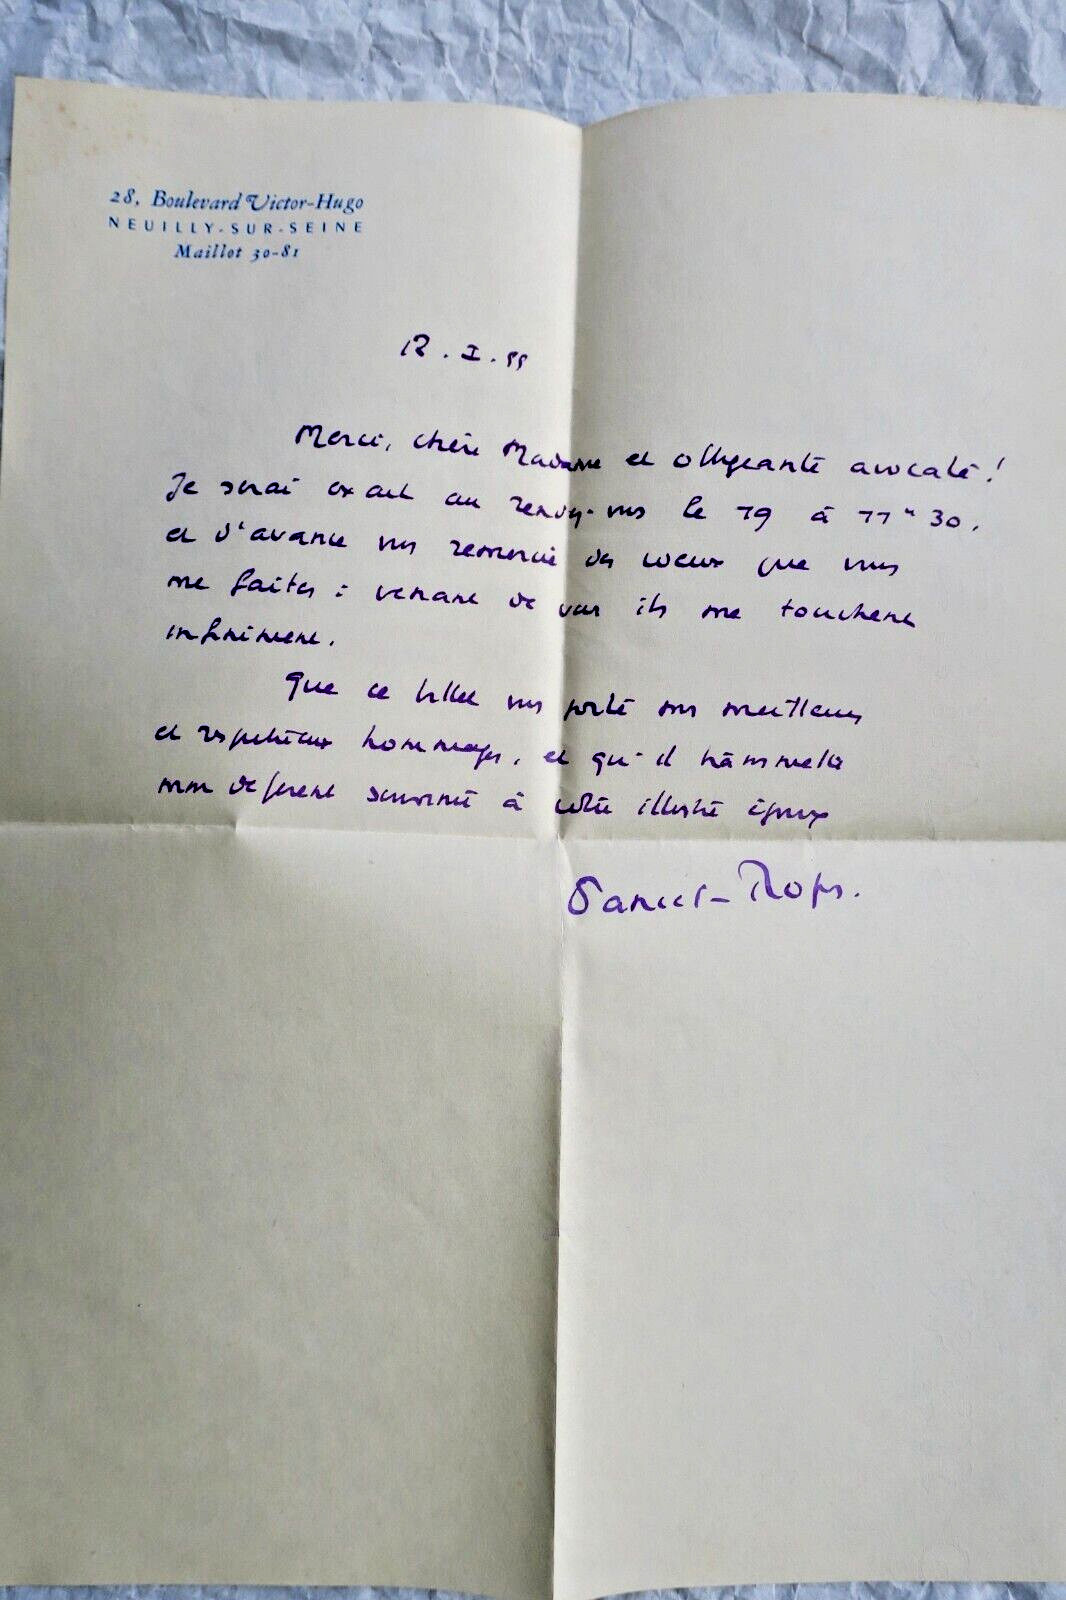 28, Boulevard Victor-Hugo
NEUILLY-SUR-SEINE
Maillot 30-81
12.I.55
Merci, chère Madame et obligeante avocate !
Je serai exact au rendez-vous le 19 à 11h30,
et d'avance vous remercie des voeux que vous
me faites : venant de vous ils me touchent
infiniment.
Que ce billet vous porte mes meilleurs
et respectueux hommages, et qu'il transmette
mon déférent souvenir à votre illustre époux
Daniel-Rops.